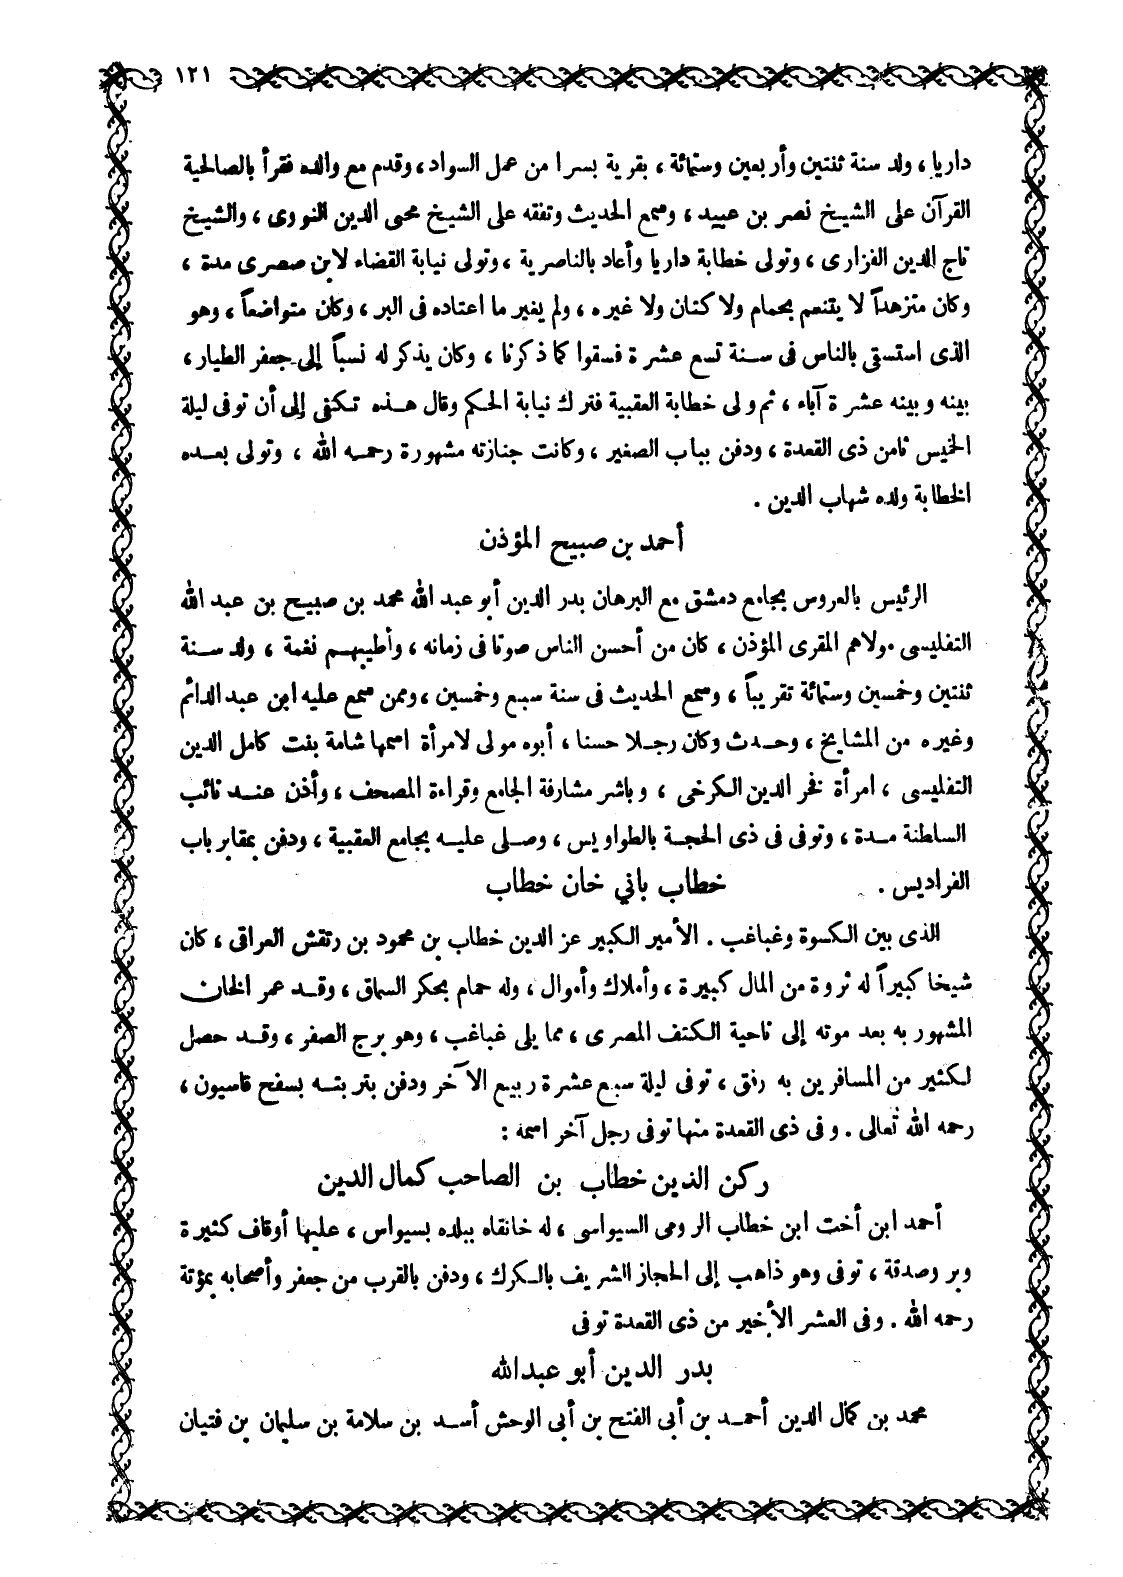 ١٢١
داريا، ولد سنة ثنتين وأربعين وستمائة، بقرية بسرا من عمل السواد، وقدم مع والده فقرأ بالصالحية
القرآن على الشيخ نصر بن عبيد، وسمع الحديث وتفقه على الشيخ محيى الدين النووى، والشيخ
تاج الدين الفزارى، وتولى خطابة داريا وأعاد بالناصرية، وتولى نيابة القضاء لابن صصرى مدة،
وكان متزهداً لا يتنعم بحمام ولا كتان ولا غيره، ولم يغير ما اعتاده فى البر، وكان متواضعاً، وهو
الذى استسقى بالناس فى سنة تسع عشرة فسقوا كما ذكرنا، وكان يذكر له نسباً إلى جعفر الطيار،
بينه وبينه عشرة آباء، ثم ولى خطابة العقبية فترك نيابة الحكم وقال هذه تكفى إلى أن توفى ليلة
الخميس ثامن ذى القعدة، ودفن بباب الصغير، وكانت جنازته مشهورة رحمه الله، وتولى بعده
الخطابة ولده شهاب الدين.
أحمد بن صبيح المؤذن
الرئيس بالعروس بجامع دمشق مع البرهان بدر الدين أبو عبد الله محمد بن صبيح بن عبد الله
التفليسى مولاهم المقرى المؤذن، كان من أحسن الناس صوتا فى زمانه، وأطيبهم نغمة، ولد سنة
ثنتين وخمسين وستمائة تقريباً، وسمع الحديث فى سنة سبع وخمسين، وممن سمع عليه ابن عبد الدائم
وغيره من المشايخ، وحدث وكان رجلا حسنا، أبوه مولى لامرأة اسمها شامة بنت كامل الدين
التفليسى، امرأة فخر الدين الكرخى، وباشر مشارفة الجامع وقراءة المصحف، وأذن عند نائب
السلطنة مدة، وتوفى فى ذى الحجة بالطواويس، وصلى عليه بجامع العقبية، ودفن بمقابر باب
الفراديس.
خطاب باني خان خطاب
الذى بين الكسوة وغباغب. الأمير الكبير عز الدين خطاب بن محمود بن رتقش العراقى، كان
شيخا كبيراً له ثروة من المال كبيرة، وأملاك وأموال، وله حمام بحكر السماق، وقد عمر الخان
المشهور به بعد موته إلى ناحية الكتف المصرى، مما يلى غباغب، وهو برج الصفر، وقد حصل
لكثير من المسافرين به رفق، توفى ليلة سبع عشرة ربيع الآخر ودفن بتربته بسفح قاسيون،
رحمه الله تعالى. وفى ذى القعدة منها توفى رجل آخر اسمه:
ركن الدين خطاب بن الصاحب كمال الدين
أحمد ابن أخت ابن خطاب الرومى السيواسى، له خانقاه ببلده بسيواس، عليها أوقاف كثيرة
وبر وصدقة، توفى وهو ذاهب إلى الحجاز الشريف بالكرك، ودفن بالقرب من جعفر وأصحابه بمؤتة
رحمه الله. وفى العشر الأخير من ذى القعدة توفى
بدر الدين أبو عبدالله
محمد بن كمال الدين أحمد بن أبى الفتح بن أبى الوحش أسد بن سلامة بن سليمان بن فتيان